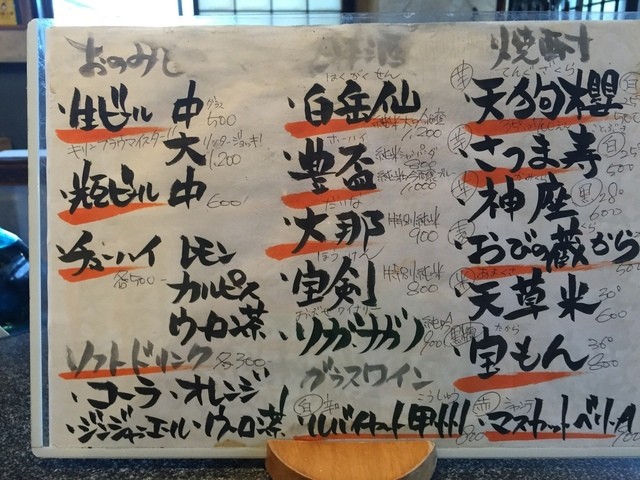 おのみもの
・生ビール 中
グラス
500
キリンブラウマイスター
大
1,200
・瓶ビール 中
600
・チューハイ レモン
各500
カルピス
ウーロン茶
ソフトドリンク 各300
・コーラ・オレンジ
・ジンジャーエール・ウーロン茶
日本酒
はくがくせん
・白岳仙
1,200
ホーハイ
・豊盃
1,000
だいな
・大那 特別純米
900
ほうけん
・宝剣 特別純米
800
・リガザガリ
グラスワイン
こうしゅう
・ルバイヤート甲州
800
焼酎
てんぐざくら
・天狗櫻
・さつま寿
500
・神座 28°
600
・おびの蔵から
500
・天草米
600
たから
・宝もん
800
・マスカットベリーA